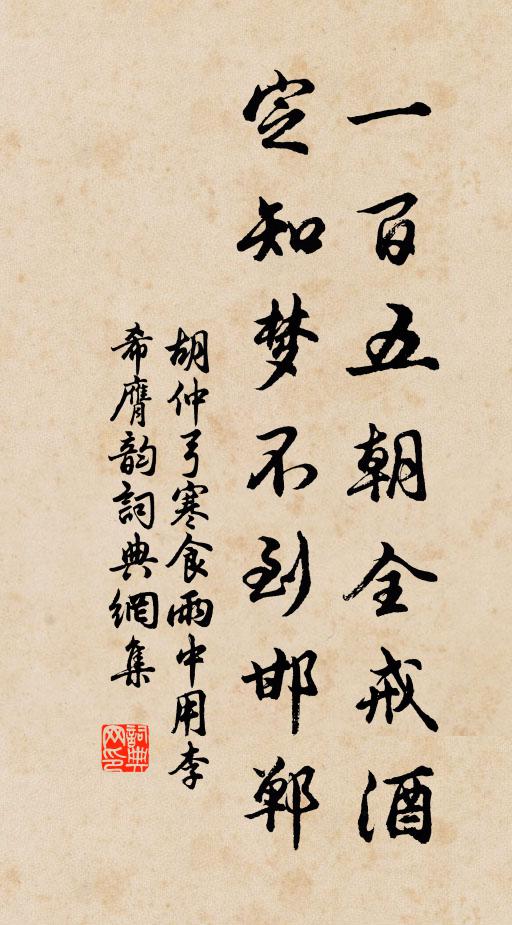 一百五朝全戒酒
定知梦不到邯郸
胡仲弓寒食雨中用李
希膺韵詞典網集
詞典网印